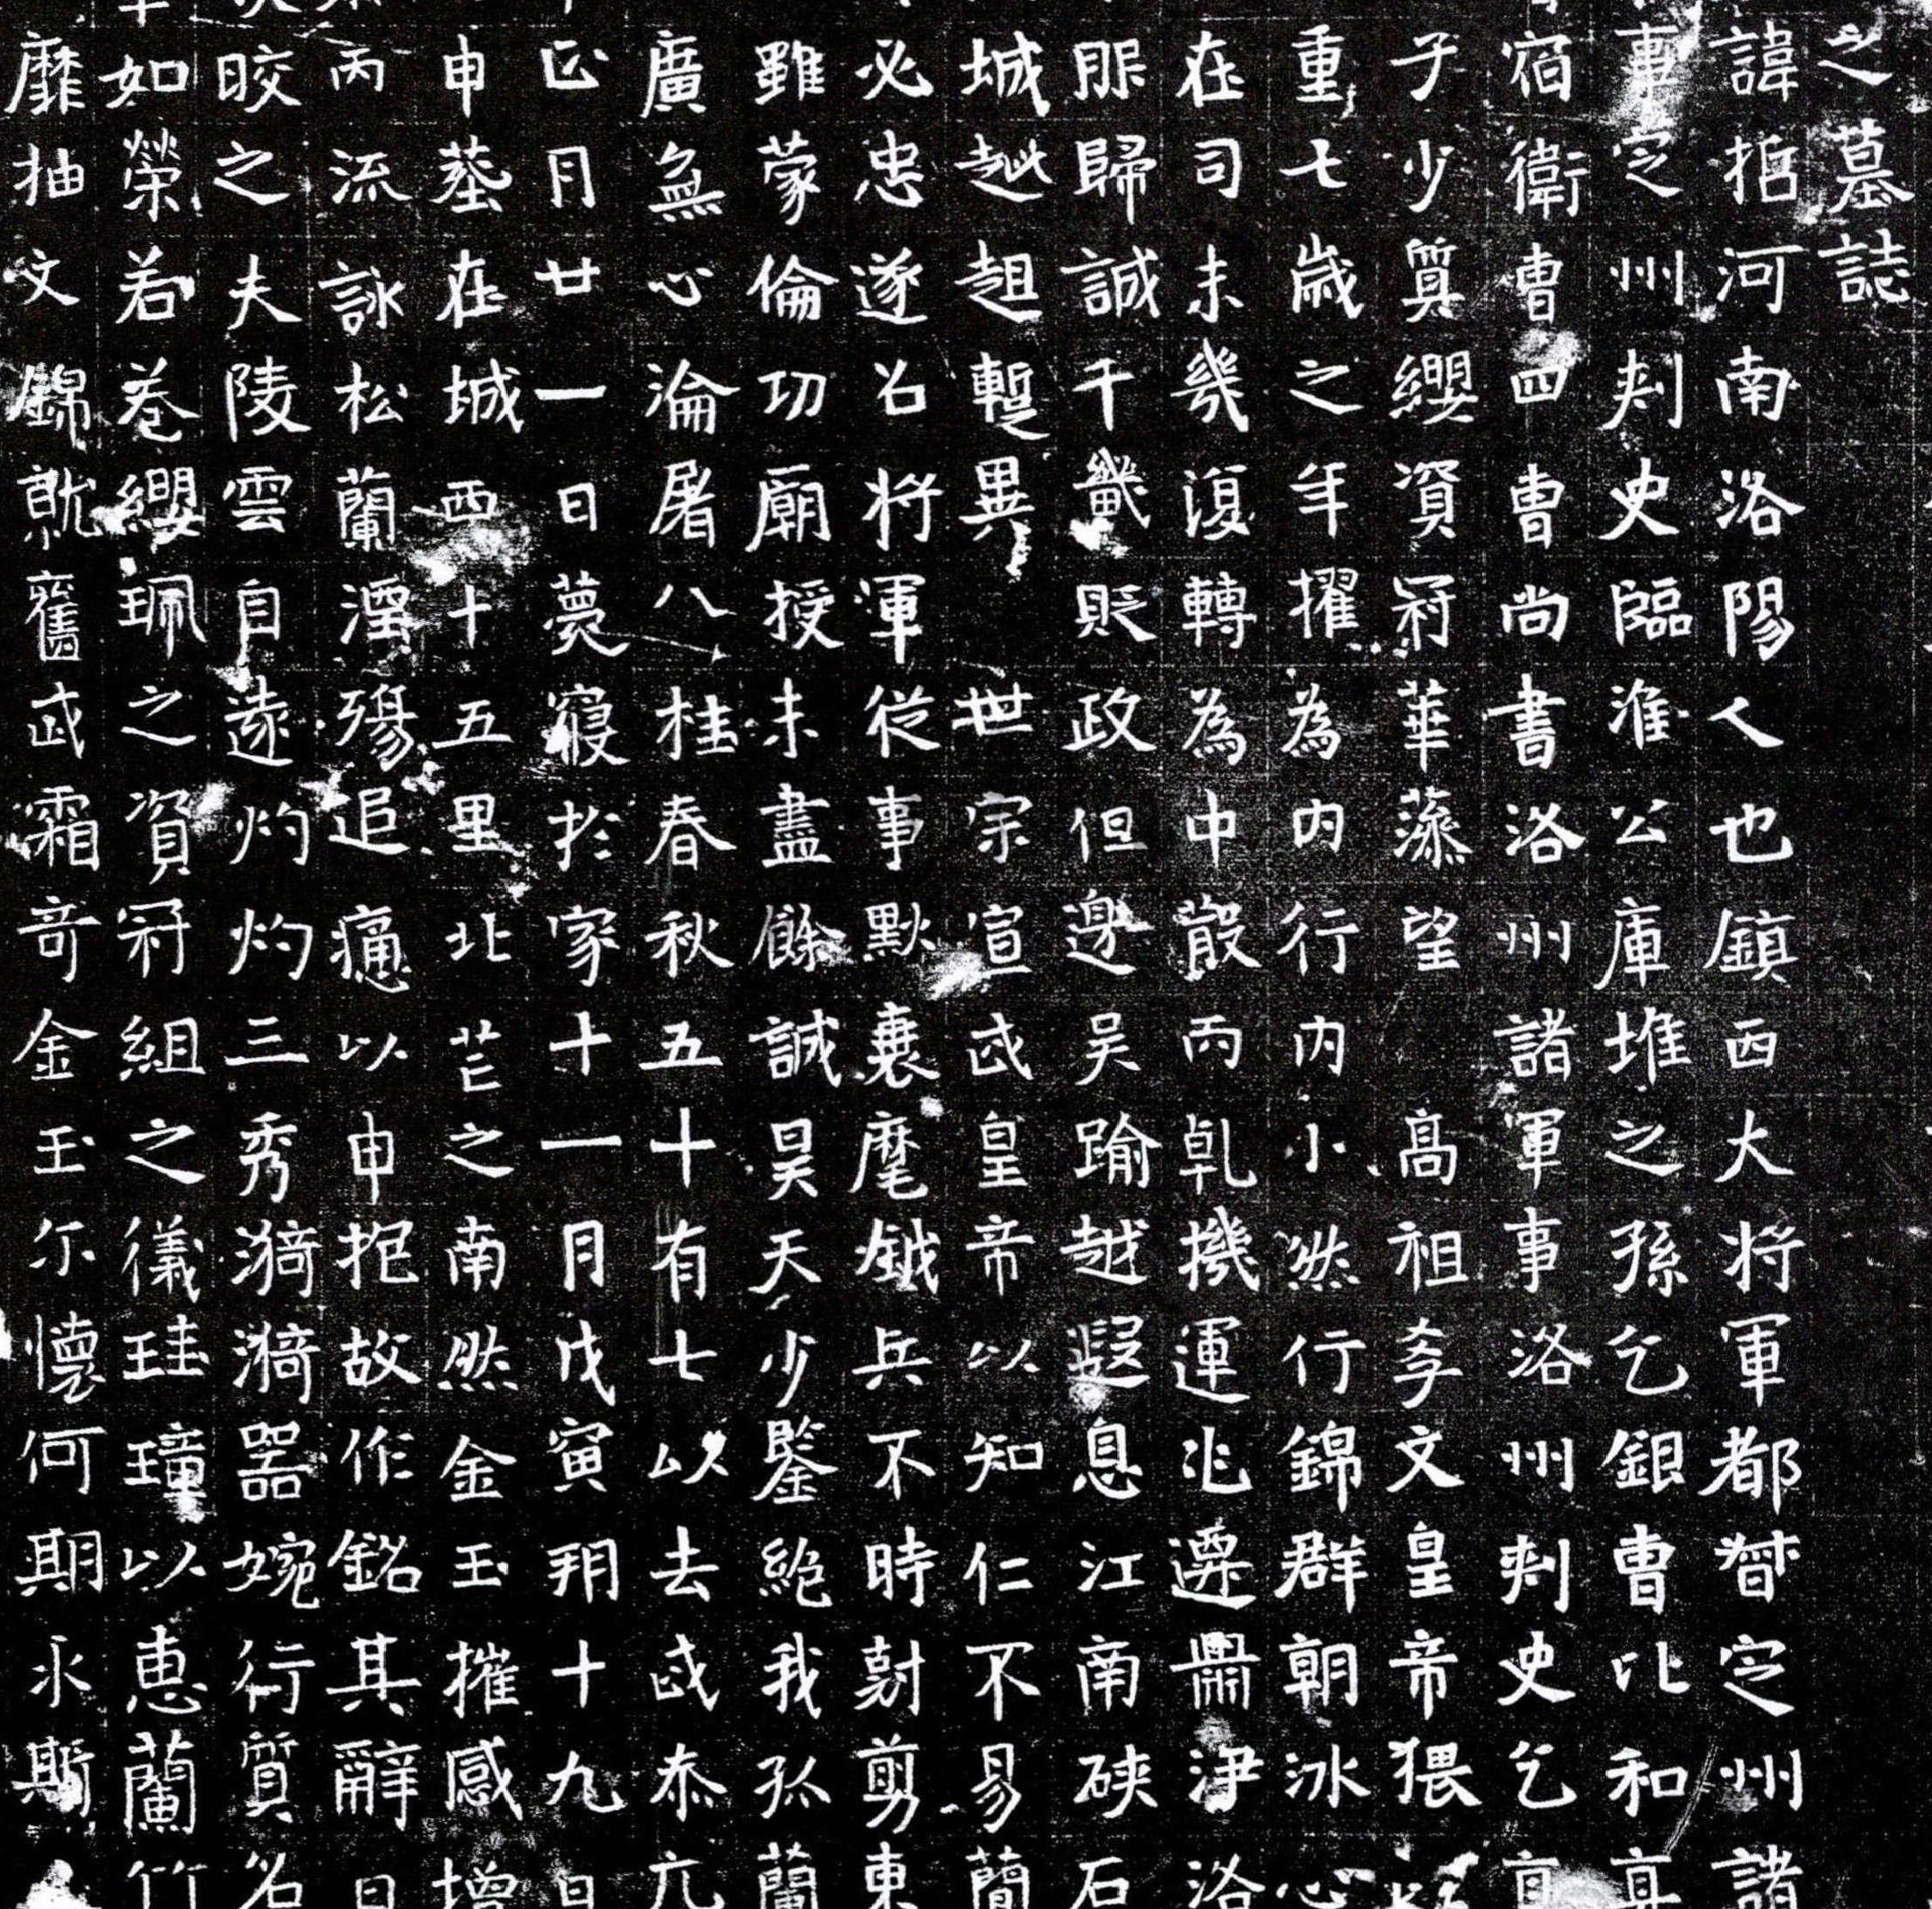 之墓誌
諱抵河南洛陽人也鎮西大將軍都督定州諸
事定州刺史臨淮公庫堆之孫乞銀曹比和真
宿衛曹四曹尚書洛州諸軍事洛州刺史乞真
子少質纓資冠華蔭望高祖孝文皇帝猥以
重七歲之年擢為內行內小然行錦群朝冰心
在司未幾復轉為中散丙乹機運兆遷鼎淨洛
服歸誠千畿貶政但邊吴踰越遐息江南硤石
城越趄蹔異世宗宣武皇帝以知仁不易簡
必忠遂召將軍從事默襄麾鉞兵不時尅剪東
雖蒙倫功廟授未盡餘誠昊天少鑒絶我孤蘭
廣無心淪屠八桂春秋五十有七以去武泰亢
正月廿一日薨寢於家十一月戊寅朔十九日
申葬在城西十五里北芒之南然金玉摧感增
丙流詠松蘭湮殤追痛以申抱故作銘其辭曰
晈之夫陵雲自遠灼灼三秀漪漪器婉行質名
如榮若卷纓珮之資冠組之儀珪璋以惠蘭竹
靡抽文錦就舊武霜奇金玉尓懷何期永斯